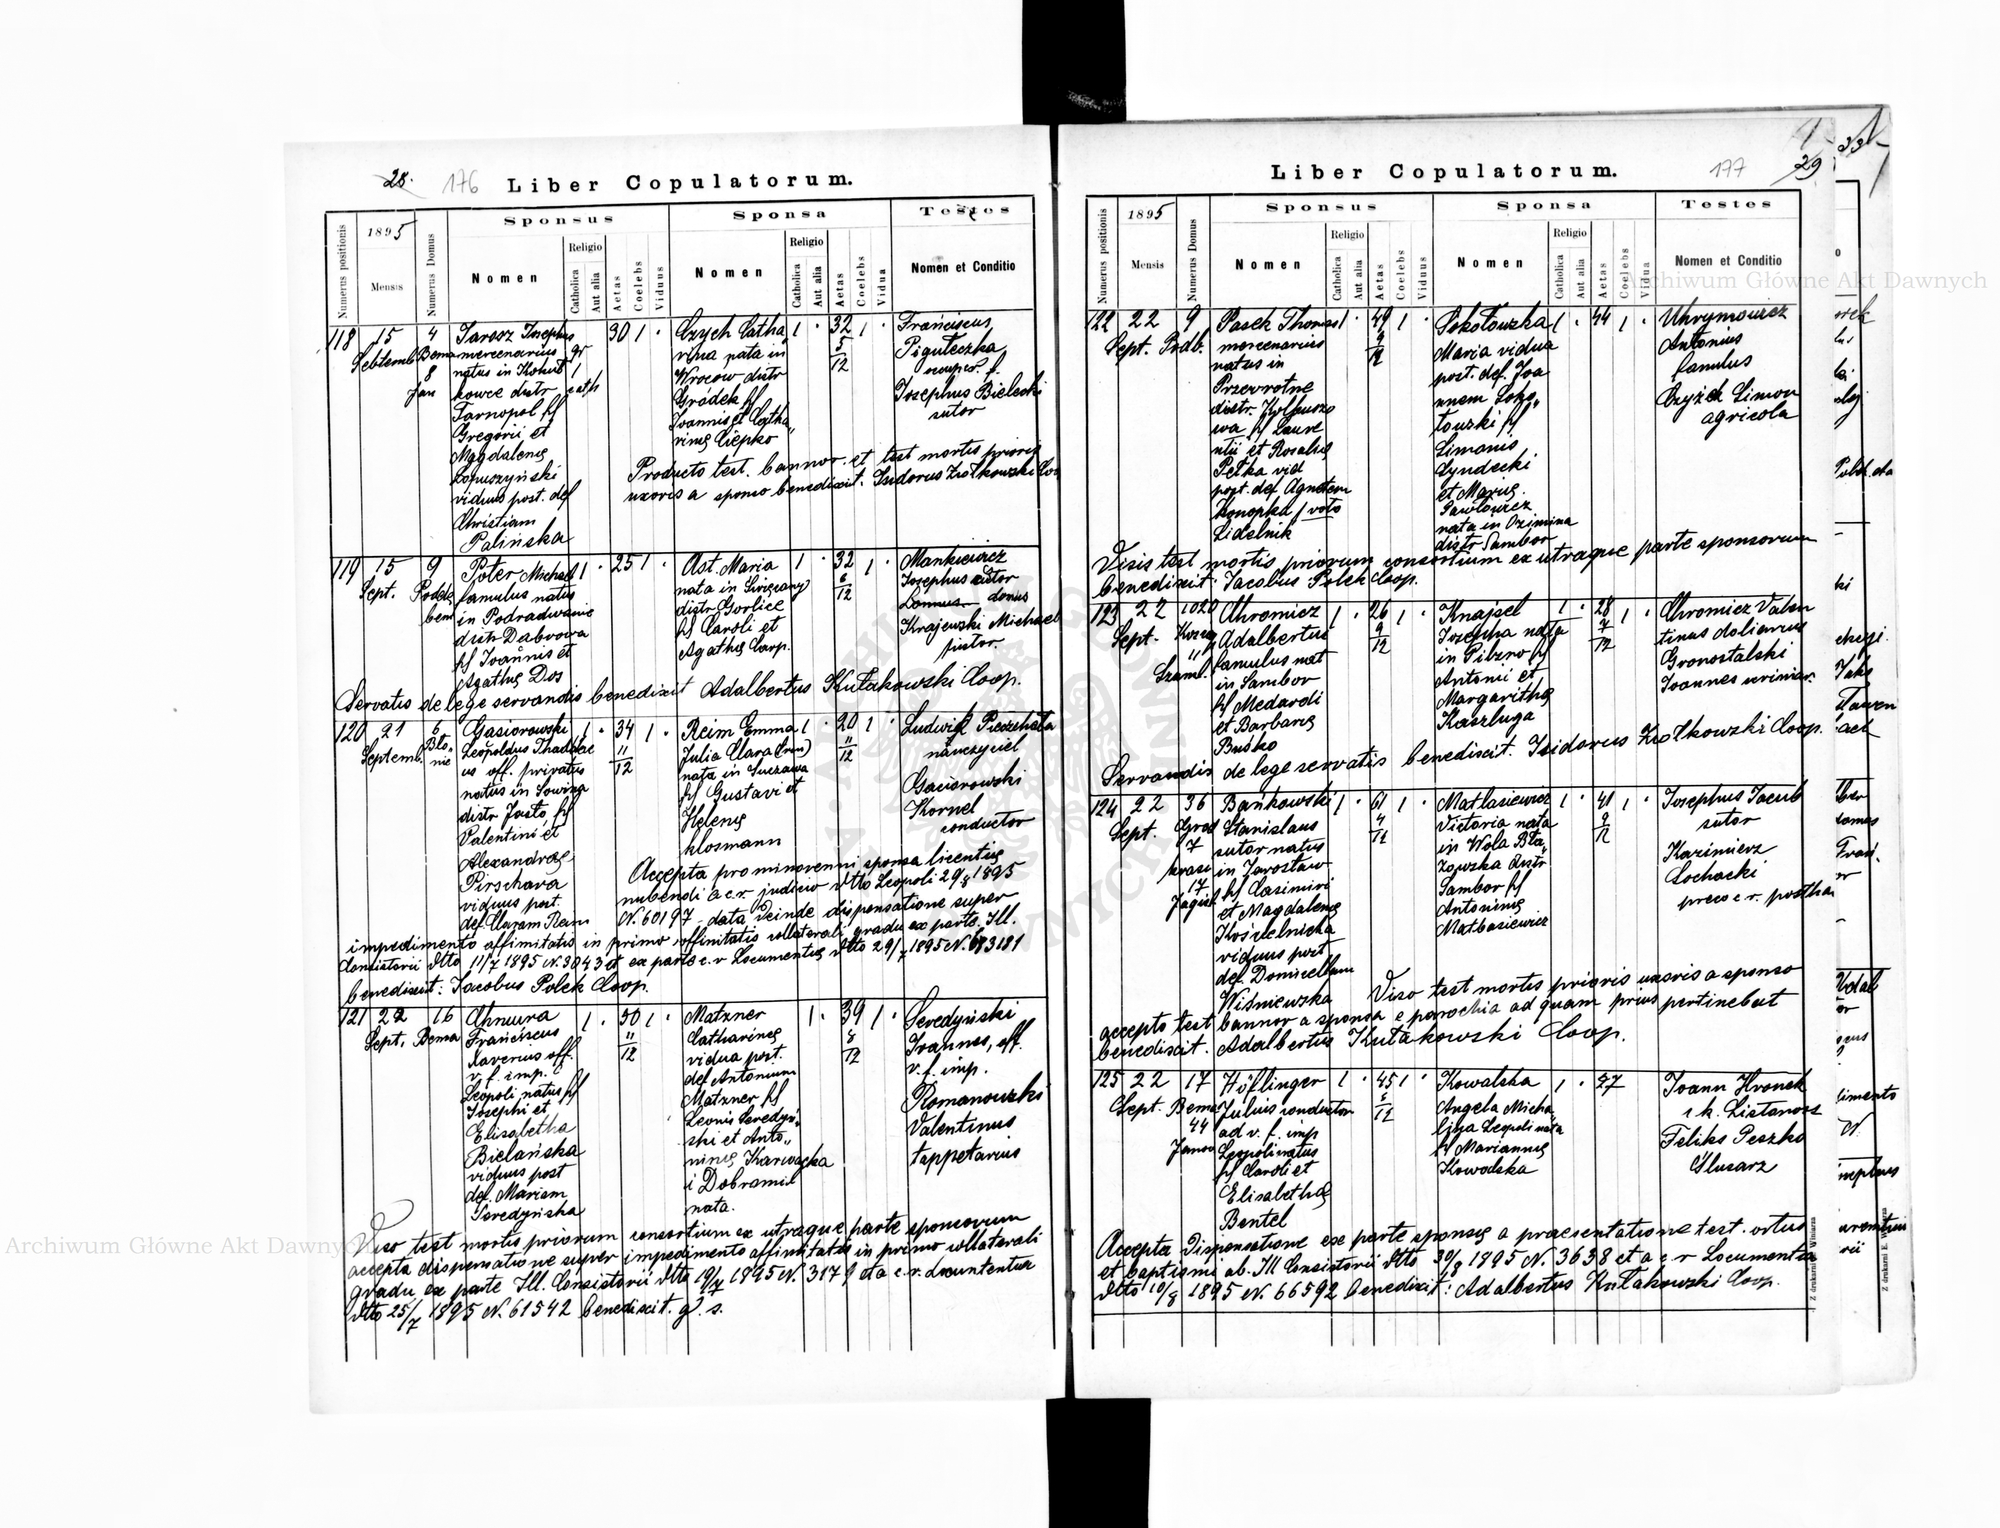 28. 176 Liber Copulatorum.
Numerus positionis
1895
Mensis
Numerus Domus
Sponsus
Nomen
Religio
Catholica
Aut alia
Aetas
Coelebs
Viduus
Sponsa
Nomen
Religio
Catholica
Aut alia
Aetas
Coelebs
Vidua
Testes
Nomen et Conditio
118 15 4
Septemb. Bema
8
Jan
Jarosz Josephus
mercenarius
natus in
kowce distr
Tarnopol f/
Gregorii et
Magdalenę
Łopuszyński
viduus post. def
Christiam
Palińska
gr
1
cath
30 1
Czych Catha
rina nata in
Wrocow distr
Gródek f/
Joannis et Catha„
rinę Ciepko
1 32 1
5
12
Franciscus
Piguteczka
f.
Josephus Bielecki
sutor
Producto test. bannor. et test mortis prioris
uxoris a sponso benedixit. Isidorus Ziołkowski Coo
119 15 9
Sept.
Poter Michael
famulus natus
in Podradwanie
distr Dabrowa
f/ Joannis et
Agathę Dos
1 25 1
Ast. Maria
nata in
distr Gorlice
f/ Caroli et
Agathę Carp.
1 32 1
6
12
Mankiewicz
Josephus sutor
domus
Krajewski Michael
sutor.
Servatis de lege servandis benedixit Adalbertus Kułakowski Coop.
120 21 6
Septemb. Bło„
nie
Gasiorowski
Leopoldus Thaddae
us off. privatus
natus in Sowina
distr Jasło, f/
Valentini et
Alexandrę
Pirschava
viduus post.
def. Claram Reim
1 34 1
11
12
Reim Emma
Julia Clara
nata in Suczawa
f/ Gustavi et
Helenę
Klosmann
1 20 1
11
12
Ludwik
nauczyciel
Gasiorowski
Kornel
conductor
Accepta pro minorenni sponsa licentię
nubendi a c. r. judicio dtto Leopoli 29/8 1895
N. 60197 data deinde dispensatione super
impedimento affinitatis in primo affinitatis collaterali gradu ex parte Ill.
Consistorii dtto 11/7 1895 N. 3043 et ex parte c. r Locumtentię dtto 29/7 1895 N.
benedixit: Jacobus Polek Coop.
121 22 16
Sept. Bema
Chmura
Franciscus
Xaverius off.
v. f. imp.
Leopoli natus f/
Josephi et
Elisabetha
Bielańska
viduus post
def. Mariam
Seredyńska
1 50 1
11
12
Matzner
Catharinę
vidua post.
def Antonium
Matzner f/
Leonis Seredyń„
ski et Anto„
ninę Karwacka
i Dobromil
nata.
1 39 1
8
12
Seredyński
Joannes, off.
v. f. imp.
Romanowski
Valentinus
tappetarius
Viso test mortis priorum consortium ex utraque parte sponsorum
accepta dispensatione super impedimento affinitatis in primo collaterali
gradu ex parte Ill. Consistorii dtto 19/7 1895 N. 317 et a c. r.
dtto 25/7 1895 N. 61542 benedixit. g. s.
Liber Copulatorum. 177 29
33
Numerus positionis
1895
Mensis
Numerus Domus
Sponsus
Nomen
Religio
Catholica
Aut alia
Aetas
Coelebs
Viduus
Sponsa
Nomen
Religio
Catholica
Aut alia
Aetas
Coelebs
Vidua
Testes
Nomen et Conditio
122 22 9
Sept. Podb.
Pasek Thomas
mercenarius
natus in
Przewrotne
distr. Kolbuszo
wa f/ Laure
ntii et Rosalię
Petka vid
post. def Agnetem
Konopka / voto
Lidelnik
1 49 1
9
12
Sokołowska
Maria vidua
post. def. Joa
nnem Soko„
łowski f/
Simonis
Lyndecki
et Marię
Pawłowicz
nata in Ozimina
distr Sambor
1 44 1
Uhrymowicz
Antonius
famulus
Czyżek Simon
agricola
Visis test mortis priorum consortium ex utraque parte sponsorum
benedixit: Jacobus Polek Coop.
123 22 1020
Sept.
Chromicz
Adalbertus
famulus nat
in Sambor
f/ Medardi
et Barbarę
Busko
1 26 1
9
12
Knajsel
Josepha nata
in Pilzno f/
Antonii et
Margarithę
Kaszluga
1 28 1
7
12
Chromicz Valen
tinus doliarius
Gronostalski
Joannes
Servandis de lege servatis benedixit. Isidorus Ziołkowski Coop.
124 22 36
Sept. Grod
7
17
Bańkowski
Stanislaus
sutor natus
in Jarosław
f/ Casimiri
et Magdalenę
Kościelnicka
viduus post
def. Domicellam
Wiśniewska
1 61 1
4
12
Mathasiewicz
Victoria nata
in Wola Bła„
żowska distr
Sambor f/
Antoninę
Mathasiewicz
1 41 1
9
12
Josephus Jacub
sutor
Kazimierz
Lochacki
Viso test mortis prioris uxoris a sponso
accepto test bannor a sponsa e parochia ad quam prius pertinebat
benedixit. Adalbertus Kułakowski Coop.
125 22 17
Sept. Bema
44
Janow
Höflinger
Julius conductor
ad v. f. imp
Leopoli natus
f/ Caroli et
Elisabethę
Bentel
1 45 1
5
12
Kowalska
Angela Micha„
lina Leopoli nata
f/ Mariannę
Kowalska
1 27
Joann Hronek
c. k. Listonosz
Feliks Peszko
Ślusarz
Accepta Dispensatione ex parte sponsę a praesentatione test. ortus
et baptismi ab. Ill Consistorii dtto 30/8 1895 N. 3638 et a c. r Locumtentia
dtto 10/8 1895 N. 66592 benedixit: Adalbertus Kułakowski Coop.
Z drukarni E. Winiarza
Z drukarni E. Winiarza
Archiwum Główne Akt Dawnych
Archiwum Główne Akt Dawnych